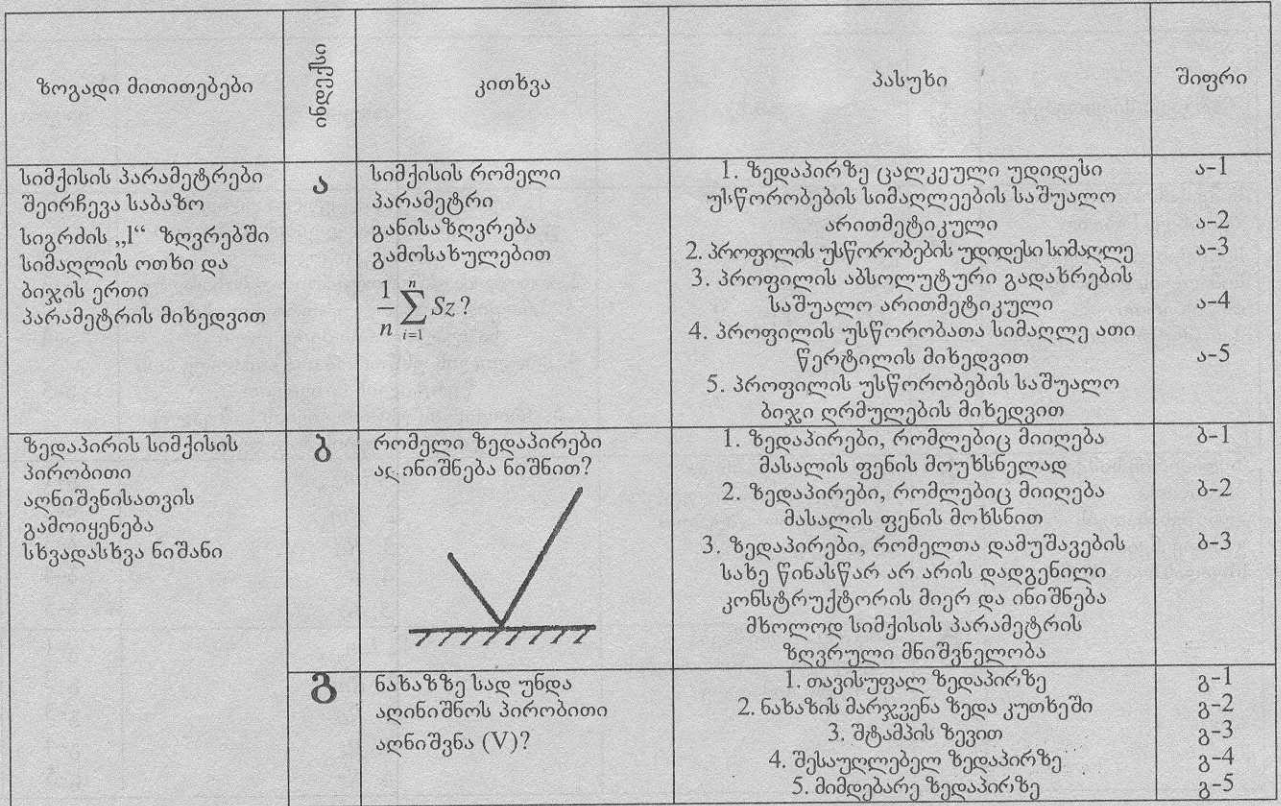 ზოგადი მითითებები
ინდექსი
კითხვა
პასუხი
შიფრი
სიმქისის პარამეტრები
შეირჩევა საბაზო
სიგრძის „l“ ზღვრებში
სიმაღლის ოთხი და
ბიჯის ერთი
პარამეტრის მიხედვით
ა
სიმქისის რომელი
პარამეტრი
განისაზღვრება
გამოსახულებით
\frac{1}{n}\sum_{i=1}^{n} Sz ?
1. ზედაპირზე ცალკეული უდიდესი
უსწორობების სიმაღლეების საშუალო
არითმეტიკული
2. პროფილის უსწორობების უდიდესი სიმაღლე
3. პროფილის აბსოლუტური გადახრების
საშუალო არითმეტიკული
4. პროფილის უსწორობათა სიმაღლე ათი
წერტილის მიხედვით
5. პროფილის უსწორობების საშუალო
ბიჯი ღრმულების მიხედვით
ა-1
ა-2
ა-3
ა-4
ა-5
ზედაპირის სიმქისის
პირობითი
აღნიშვნისათვის
გამოიყენება
სხვადასხვა ნიშანი
ბ
რომელი ზედაპირები
აღინიშნება ნიშნით?
1. ზედაპირები, რომლებიც მიიღება
მასალის ფენის მოუხსნელად
2. ზედაპირები, რომლებიც მიიღება
მასალის ფენის მოხსნით
3. ზედაპირები, რომელთა დამუშავების
სახე წინასწარ არ არის დადგენილი
კონსტრუქტორის მიერ და ინიშნება
მხოლოდ სიმქისის პარამეტრის
ზღვრული მნიშვნელობა
ბ-1
ბ-2
ბ-3
გ
ნახაზზე სად უნდა
აღინიშნოს პირობითი
აღნიშვნა (V)?
1. თავისუფალ ზედაპირზე
2. ნახაზის მარჯვენა ზედა კუთხეში
3. შტამპის ზევით
4. შესაუღლებელ ზედაპირზე
5. მიმდებარე ზედაპირზე
გ-1
გ-2
გ-3
გ-4
გ-5